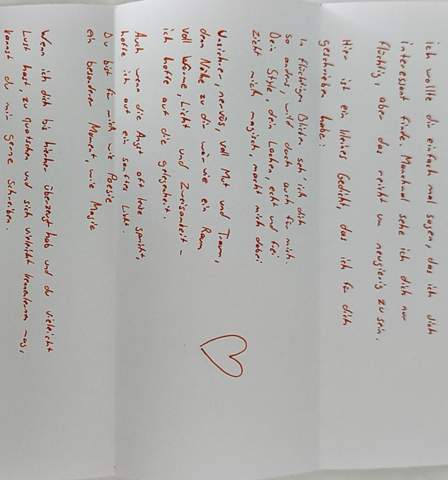 Ich wollte dir einfach mal sagen, das ich dich
interessant finde. Manchmal sehe ich dich nur
flüchtig, aber das reicht um neugierig zu sein.
Hier ist ein kleines Gedicht, das ich für dich
geschrieben habe:
In flüchtigen Blicken seh' ich dich
so anders, wild doch auch für mich.
Dein Style, dein Lachen, echt und frei
zieht mich magisch, macht mich dabei
Unsicher, nervös, voll Mut und Traum,
denn Nähe zu dir wär wie ein Raum
voll Wärme, Licht und Zweisamkeit -
ich hoffe auf die gelegenheit.
Auch wenn die Angst oft leise spricht,
hoffe ich auf ein sanftes Licht.
Du bist für mich wie Poesie
ein besonderer Moment, wie Magie
Wenn ich dich bis hierher überzeugt hab und du vielleicht
Lust hast, zu quatschen und sich vielleicht kennenlernen mag,
kannst du mir gerne schreiben.